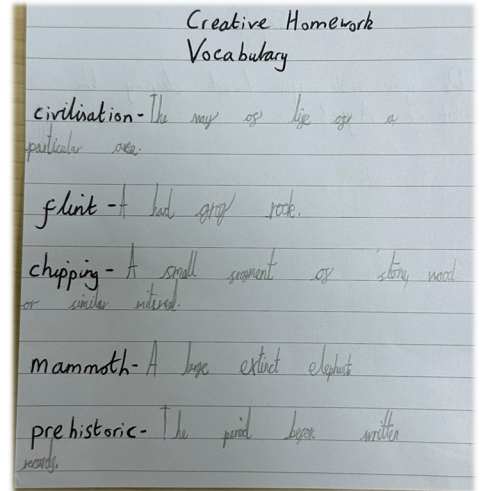 Creative Homework
Vocabulary
civilisation - The way of life of a
particular area.
flint - A hard grey rock.
chipping - A small fragment of stone, wood
or similar material.
mammoth - A large extinct elephant
prehistoric - The period before written
records.